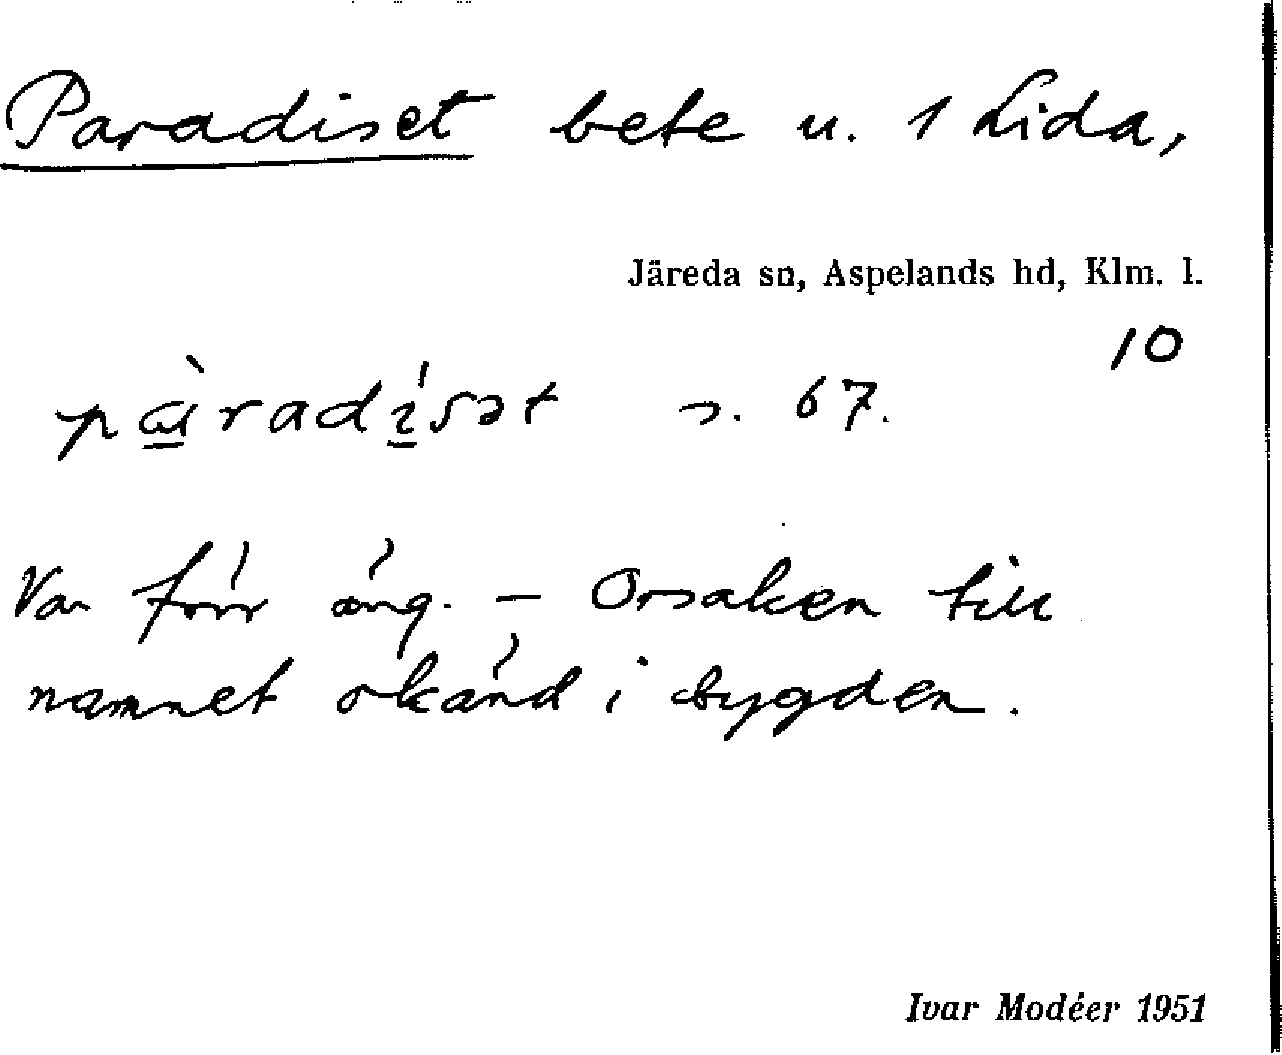 Paradiset bete u. 1 Lida,
Järeda sn, Aspelands hd, Klm. l.
10
pàradísət s. 67.
Var förr äng. – Orsaken till
namnet okänd i bygden.
Ivar Modéer 1951